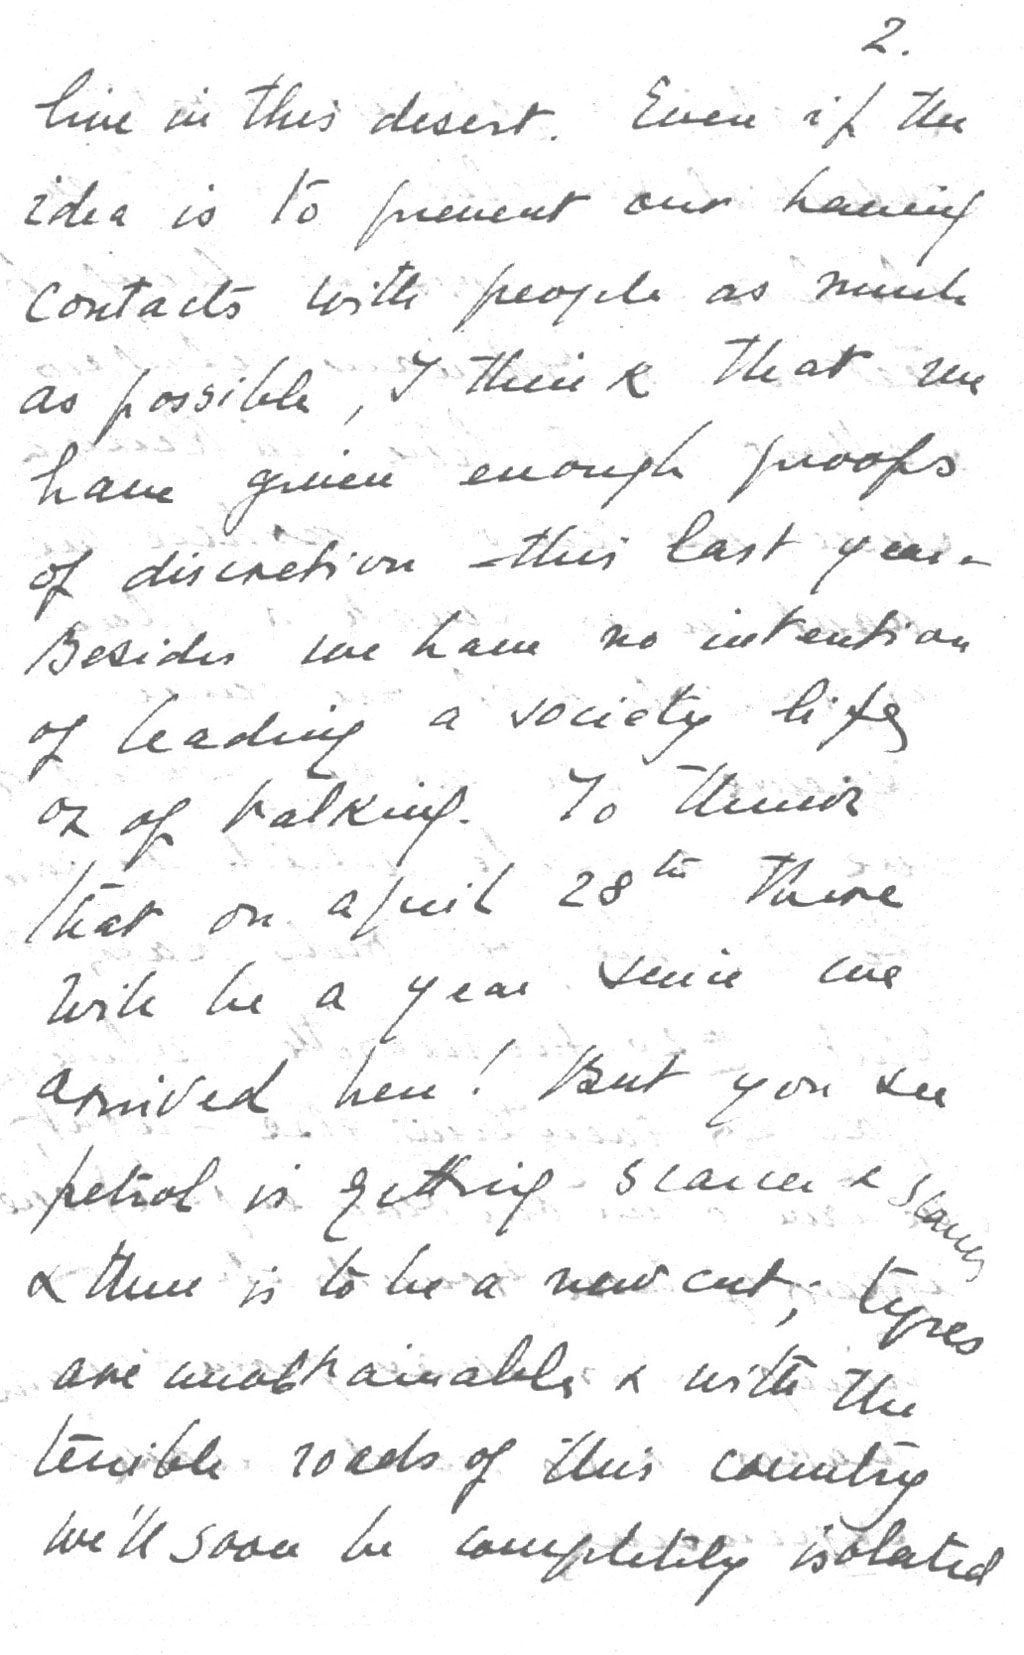 2.
live in this desert. Even if the
idea is to prevent our having
contacts with people as much
as possible, I think that we
have given enough proofs
of discretion this last year.
Besides we have no intention
of leading a society life,
or of talking. To think
that on april 28th there
will be a year since we
arrived here! But you see
petrol is getting scarcer & scarcer
& there is to be a new cut; tyres
are unobtainable & with the
terrible roads of this country
we'll soon be completely isolated